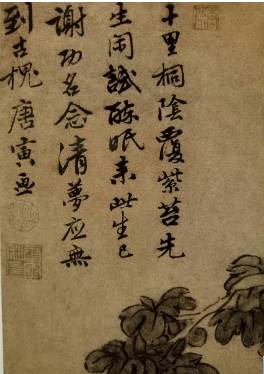 十里桐陰覆紫苔先
生閒試醉眠來此生已
謝功名念清夢應無
到古槐唐寅畫